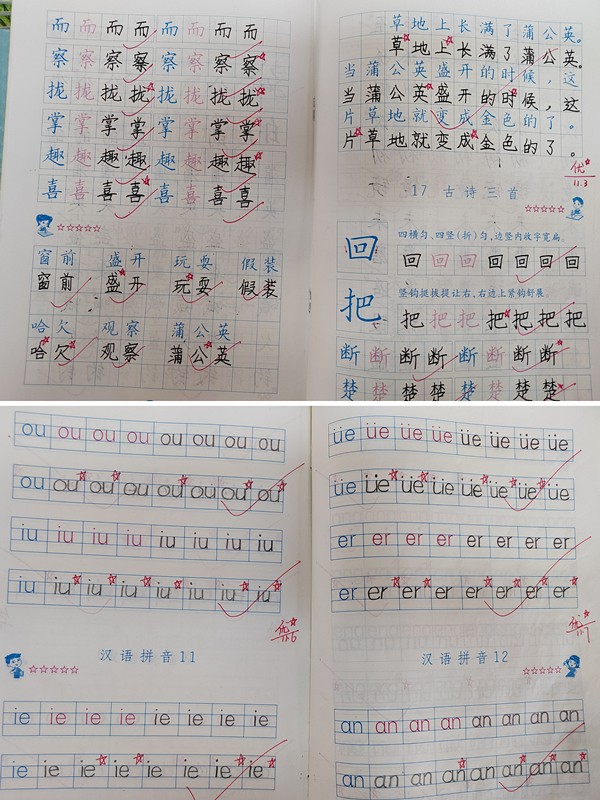 而 而 而 而 而 而 而 而
察 察 察 察 察 察 察 察
拢 拢 拢 拢 拢 拢 拢 拢
掌 掌 掌 掌 掌 掌 掌 掌
趣 趣 趣 趣 趣 趣 趣 趣
喜 喜 喜 喜 喜 喜 喜 喜
窗前 盛开 玩耍 假装
窗前 盛开 玩耍 假装
哈欠 观察 蒲公英
哈欠 观察 蒲公英
草地上长满了蒲公英。
草地上长满了蒲公英。
当蒲公英盛开的时候，这
当蒲公英盛开的时候，这
片草地就变成金色的了。
片草地就变成金色的了。
优
11.3
17 古诗三首
四横匀、四竖(折)匀,边竖内收字宽扁。
回 回 回 回 回 回 回 回
竖钩挺拔提让右,右边上紧钩舒展。
把 把 把 把 把 把 把 把
断 断 断 断 断 断 断 断
楚 楚 楚 楚 楚 楚 楚 楚
ou ou ou ou ou ou ou ou
ou ou ou ou ou ou ou ou
iu iu iu iu iu iu iu iu
iu iu iu iu iu iu iu iu
优
11.6
汉语拼音11
ie ie ie ie ie ie ie ie
ie ie ie ie ie ie ie ie
üe üe üe üe üe üe üe üe
üe üe üe üe üe üe üe üe
er er er er er er er er
er er er er er er er er
优
11.7
汉语拼音12
an an an an an an an an
an an an an an an an an